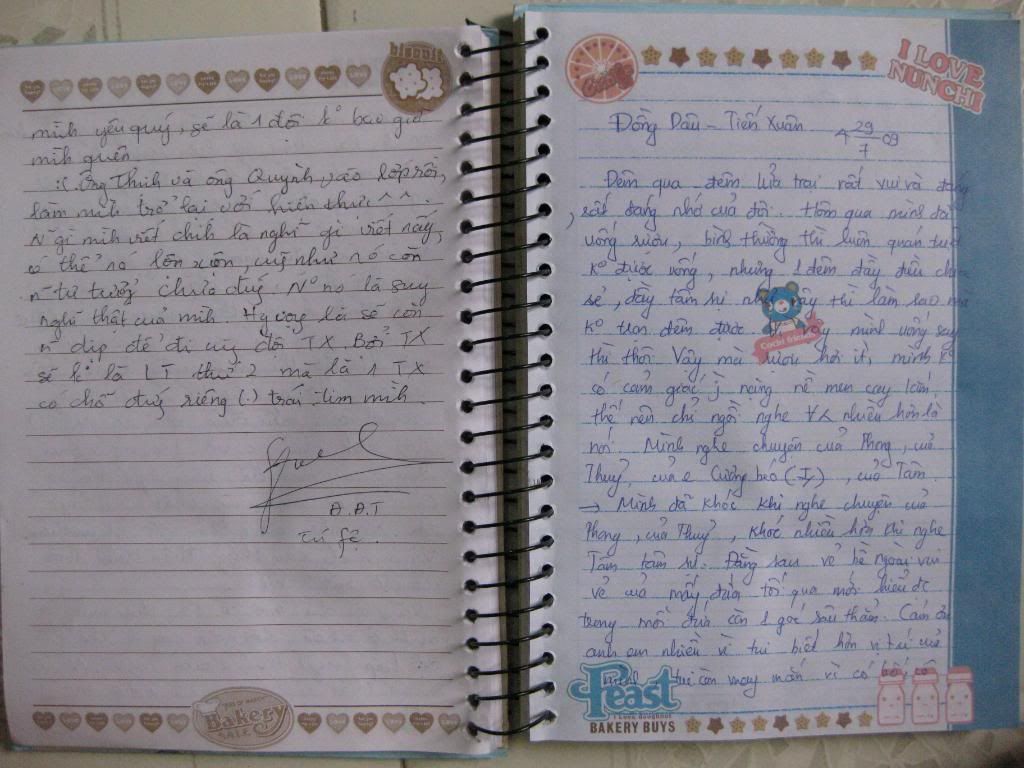 biscuit
mình yêu quý, sẽ là 1 đội k° bao giờ
mình quên.
:( Ông Thinh và ông Quỳnh vào lớp rồi,
làm mih trở lại với hiện thực ^^.
N gì mih viết chih là nghĩ gì viết nấy,
có thể nó lộn xộn, cũg như nó còn
n tư tưởg chưa đúg. N° nó là suy
nghĩ thật của mih. Hy vọg là sẽ còn
n dịp để đi cùg đội TX. Bởi TX
sẽ k° là LT thứ 2 mà là 1 TX
có chỗ đứg riêng (.) trái tim mih
Đ.Đ.T
Bakery
SALE
I LOVE
NUNCHI
Đồng Dâu - Tiến Xuân
4 29/7 09
Đêm qua đêm lửa trại rất vui và đáng
, rất đáng nhớ của đội. Hôm qua mình đã
uống rượu, bình thường thì luôn quán triệt
k° được uống, nhưng 1 đêm đầy điều chia
sẻ, đầy tâm sự như vậy thì làm sao mà
k° trọn đêm được. Vì vậy mình uống say
thì thôi. Vậy mà rượu hơi ít, mình k°
có cảm giác j nồng nề men cay lắm
thế nên chỉ ngồi nghe nhiều hơn là
nói. Mình nghe chuyện của Phong, của
Thuỷ, của e Cường béo, của Tâm.
→ Mình đã khóc khi nghe chuyện của
Phong, của Thuỷ, khóc nhiều hơn khi nghe
Tâm tâm sự. Đằng sau vẻ bề ngoài vui
vẻ của mấy đứa tối qua mới hiểu đc
trong mỗi đứa còn 1 góc sâu thẳm. Cám ơn
anh em nhiều vì tui biết hơn vị trí của
mình, tui còn may mắn vì có bố, có
Cochi friends
Feast
I Love doughnut
BAKERY BUYS